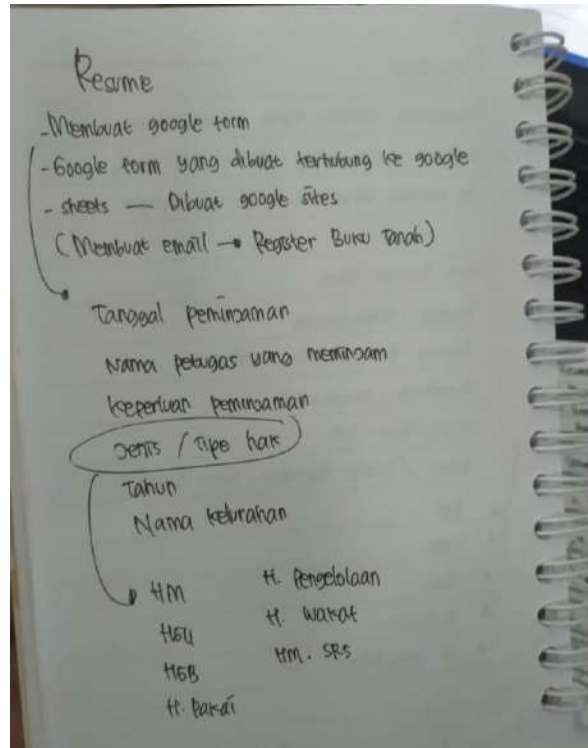 Resume
- Membuat google form
- Google form yang dibuat terhubung ke google
- sheets — Dibuat google sites
(Membuat email → Register Buku Tanah)
Tanggal peminjaman
Nama petugas yang meminjam
Keperluan peminjaman
Jenis / Tipe hak
Tahun
Nama kelurahan
HM
HGU
HGB
H. Pakai
H. Pengelolaan
H. Wakaf
HM. SRS